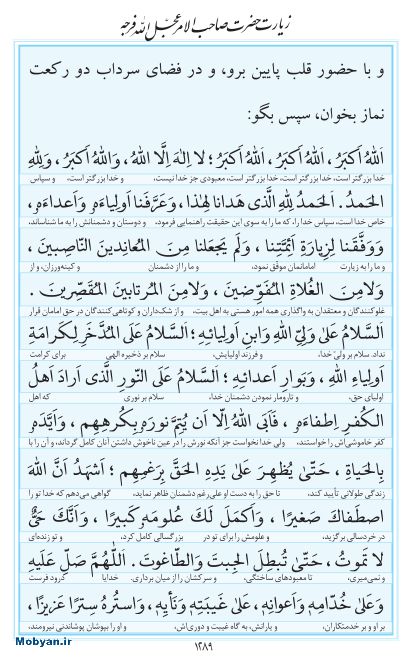 زیارت حضرت صاحب الامر عجل الله فرجه
و با حضور قلب پایین برو، و در فضای سرداب دو رکعت
نماز بخوان، سپس بگو:
اَللهُ اَكبَرُ، اَللهُ اَكبَرُ، اَللهُ اَكبَرُ؛ لا اِلهَ اِلَّا اللهُ، وَاللهُ اَكبَرُ، وَلِلهِ
خدا بزرگتر است، خدا بزرگتر است، خدا بزرگتر است، معبودی جز خدا نیست، و خدا بزرگتر است، و سپاس
الحَمدُ. اَلحَمدُ لِلهِ الَّذى هَدانا لِهذا، وَعَرَّفَنا اَولِياءَهُ وَاَعداءَهُ،
خاص خدا است، سپاس خدا را، که ما را به سوی این حقیقت راهنمایی فرمود، و دوستان و دشمنانش را به ما شناساند،
وَوَفَّقَنا لِزِيارَةِ اَئِمَّتِنا، وَلَم يَجعَلنا مِنَ المُعانِدينَ النّاصِبينَ،
و ما را به زیارت امامانمان موفق نمود، و ما را از دشمنان و کینه‌ورزان، و از
وَلامِنَ الغُلاةِ المُفَوِّضينَ، وَلامِنَ المُرتابينَ المُقَصِّرينَ.
غلوکنندگان و معتقدان به واگذاری همه امور هستی به اهل بیت، و از شک‌داران و کوتاهی کنندگان در حق امامان قرار
اَلسَّلامُ عَلىٰ وَلِىِّ اللهِ وَابنِ اَولِيائِهِ؛ اَلسَّلامُ عَلَى المُدَّخَرِ لِكَرامَةِ
نداد. سلام بر ولیّ خدا، و فرزند اولیایش، سلام بر ذخیره الهی برای کرامت
اَولِياءِ اللهِ، وَبَوارِ اَعدائِهِ؛ اَلسَّلامُ عَلَى النّورِ الَّذى اَرادَ اَهلُ
اولیای حق، و تارومار نمودن دشمنان خدا، سلام بر نوری که اهل
الكُفرِ اِطفاءَهُ، فَاَبَى اللهُ اِلّا اَن يُتِمَّ نورَهُ بِكُرهِهِم، وَاَيَّدَهُ
کفر خاموشی‌اش را خواستند، ولی خدا نخواست جز آنکه نورش را در عین ناخوش داشتن آنان کامل گرداند، و آن را با
بِالحَياةِ، حَتّىٰ يُظهِرَ عَلىٰ يَدِهِ الحَقَّ بِرَغمِهِم؛ اَشهَدُ اَنَّ اللهَ
زندگی طولانی تأیید کند، تا حق را به دست او علی‌رغم دشمنان ظاهر نماید، گواهی می‌دهم که خدا تو را
اصطَفاكَ صَغيرًا، وَاَكمَلَ لَكَ عُلومَهُ كَبيرًا، وَاَنَّكَ حَىٌّ
در خردسالی برگزید، و علومش را برای تو در بزرگسالی کامل کرد، و تو زنده‌ای
لا تَموتُ، حَتّىٰ تُبطِلَ الجِبتَ وَالطّاغوتَ. اَللّهُمَّ صَلِّ عَلَيهِ
و نمی‌میری، تا معبودهای ساختگی، و سرکشان را از میان برداری. خدایا درود فرست
وَعَلىٰ خُدّامِهِ وَاَعوانِهِ، عَلىٰ غَيبَتِهِ وَنَأيِهِ، وَاستُرهُ سِترًا عَزيزًا،
بر او و بر خدمتکاران، و یارانش، به گاه غیبت و دوری‌اش، و او را بپوشان پوشاندنی نیرومند،
۱۲۸۹
Mobyan.ir